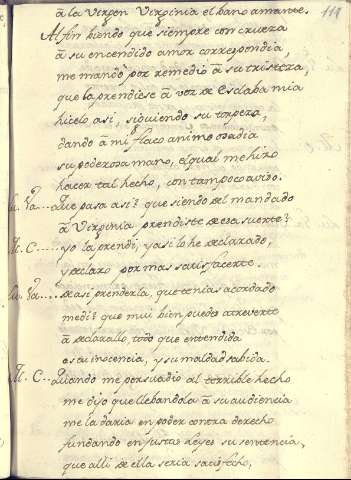 114
â la Virgen Virginia el bano amante.
Al fin biendo que siempre con crueza
â su encendido amor correspondia,
me mandó por remedio â su tristeza,
que la prendiese â voz de Esclaba mia
hicelo asi, siguiendo su torpeza,
dando â mi flaco animo osadia
su poderoza mano, el qual me hizo
hacer tal hecho, con tam poco aviso.
Que pasa asi? que siendo del mandado
â Virginia prendiste de esa suerte?
M. C.... yo la prendi, y asi lo he declarado,
y declaro por mas satisfacerte.
de asi prenderla, que tenias acordado
medi? que mui bien puedo atreverte
â declarallo, todo que entendida
es su inocencia, y su maldad sabida.
M. C.... Quando me persuadio al terrible hecho
me dijo que llebandola â su audiencia
me la daria en poder contra derecho
fundando en justas leyes su sentencia,
que alli de ella seria satisfecho,